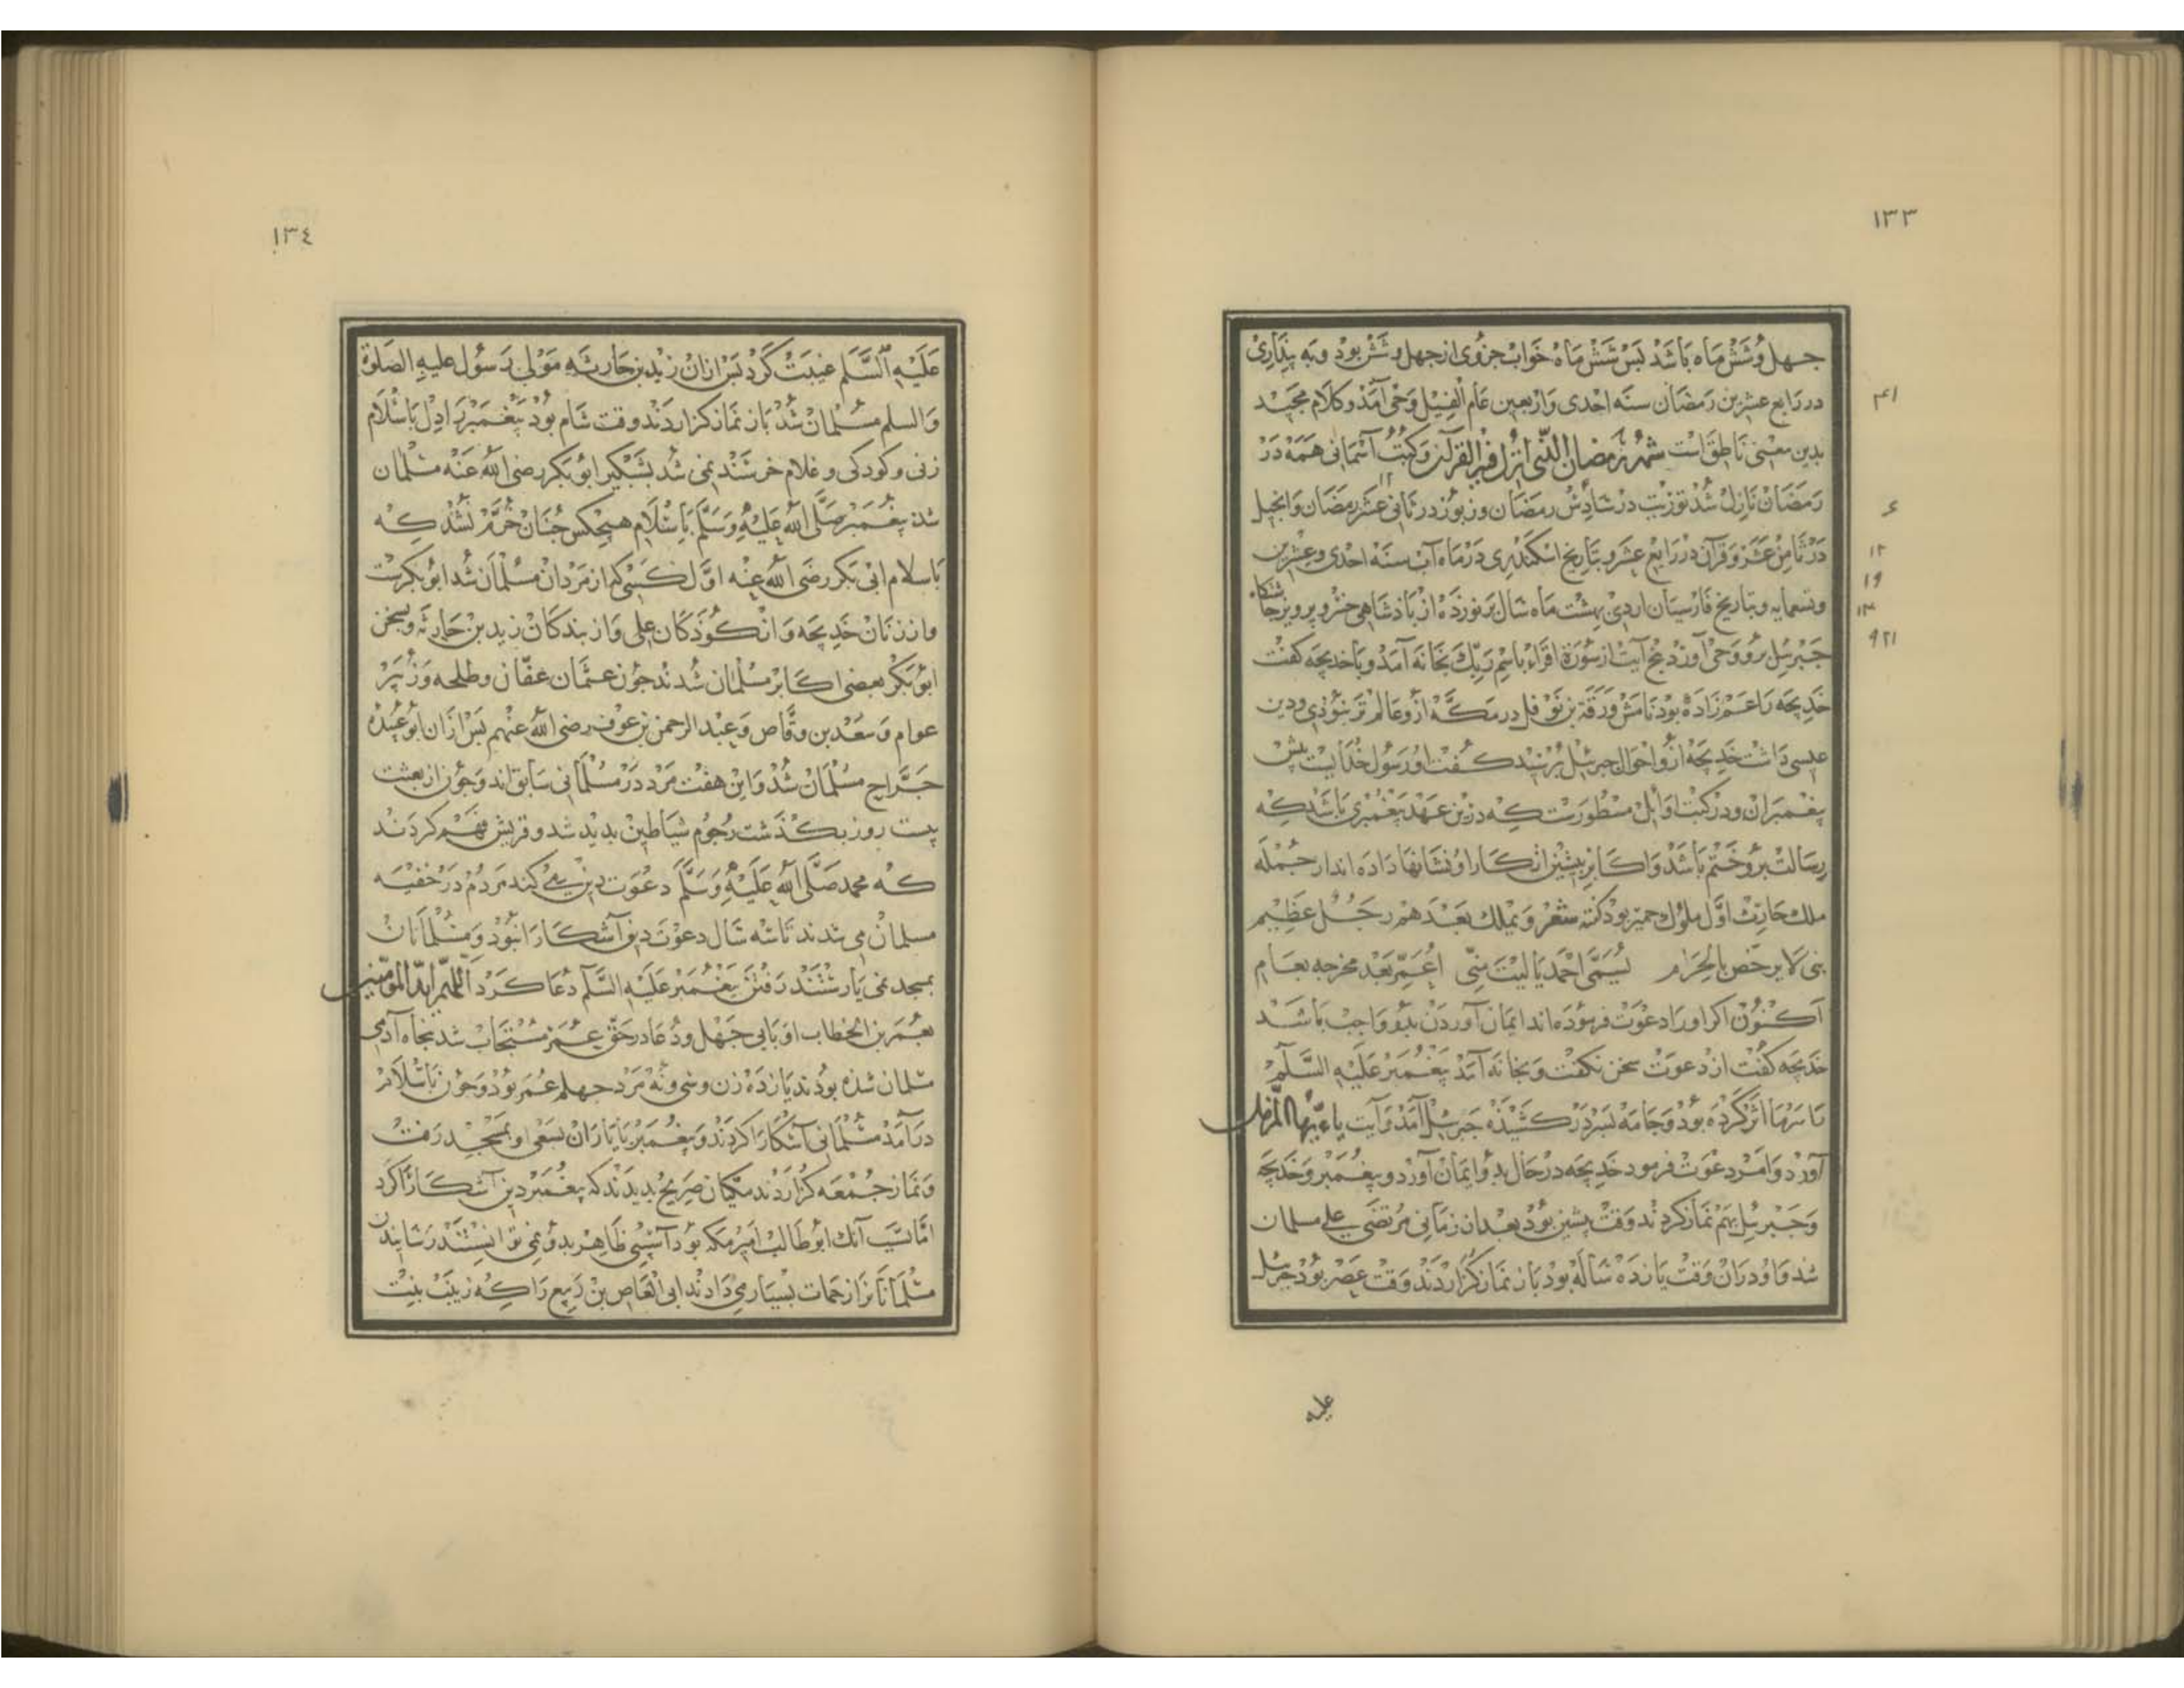 ١٣٣
جهل و شش ماه باشد بس شش ماه خواب جزوی از جهل و شش بود و به بنداری
در رابع عشرین رمضان سنه احدی و اربعین عام الفیل وحی آمد و کلام مجید
٤١
بدین معنی ناطق است شهر رمضان الذی انزل فیه القرآن و کتب آسمانی همه در
رمضان نازل شد توریت در سادس رمضان و زبور در ثانی عشر رمضان و انجیل
۶
در ثامن عشر و قرآن در رابع عشر و بتاریخ اسکندری در ماه آب سنه احدی و عشرین
١٢
و تسعمایه و بتاریخ فارسیان اردی بهشت ماه سال بر نوزده از باذشاهی خسرو پرویز
١٩
١٣
جبرئیل برو وحی آورد بنج آیت از سورة اقراء باسم ربک بخانه آمد و با خدیجه کفت
٩٢١
خدیجه را عم زاده بود نامش ورقة بن نوفل در مکه ازو عالم تر نبوذی و دین
عیسی داشت خدیجه ازو احوال جبرئیل برسید کفت او رسول خدایست پیش
پیغمبران و در کتب اوایل مسطورست که درین عهد پیغمبری باشد که
رسالت برو ختم باشد و اکابر پیشین از کار او نشانها داده اند از جمله
ملک حارث اول ملوک حمیر بود کفته شعر و یملک بعدهم رجل عظیم
نبی لا یرخص بالحرام یسمی احمد یا لیت منی اعمر بعد مخرجه بعام
اکنون اکر او را دعوت فرموده اند ایمان آوردن بدو واجب باشد
خدیجه کفت از دعوت سخن نکفت و بخانه آمد پیغمبر علیه السلم
تا سرما اثر کرده بود و جامه بسر در کشیذه جبرئیل آمد و آیت یاءیها المزمل
آورد و امر دعوت فرمود خدیجه در حال بدو ایمان آورد و پیغمبر و خدیجه
و جبرئیل بهم نماز کردند وقت پشین بود بعد ان زمانی مرتضی علی مسلمان
شد و او دران وقت یازده ساله بود باز نماز کزاردند وقت عصر بود جبرئیل
علیه
١٣٤
علیه السلم غیبت کرد بس ازان زید بن حارثه مولی رسول علیه الصلوة
و السلم مسلمان شد باز نماز کزاردند وقت شام بود پیغمبر را دل باسلام
زنی و کودکی و غلام خرسند نمی شد بشبکیر ابو بکر رضی الله عنه مسلمان
شد پیغمبر صلی الله علیه وسلم باسلام هیچکس جنان خرم نشد که
باسلام ابی بکر رضی الله عنه اول کسی که از مردان مسلمان شد ابو بکرست
و از زنان خدیجه و از کوذکان علی و از بندکان زید بن حارثه و بسخن
ابو بکر بعضی اکابر مسلمان شدند جون عثمان عفان و طلحه و زبیر
عوام و سعد بن وقاص و عبد الرحمن بن عوف رضی الله عنهم بس ازان ابو عبیده
جراح مسلمان شد و این هفت مرد در مسلمانی سابق اند و جون از بعثت
بیست روز بکذشت رجوم شیاطین بدید شد و قریش فهم کردند
که محمد صلی الله علیه وسلم دعوت دین می کند مردم در خفیه
مسلمان می شدند تا سه سال دعوت دین آشکارا نبود و مسلمانان
بمسجد نمی یارستند رفتن پیغمبر علیه السلم دعا کرد اللهم اید المؤمنین
بعمر بن الخطاب او بابی جهل و دعا در حق عمر مستجاب شد بنجاه آدمی
مسلمان شده بودند یازده زن و سی و نه مرد جهلم عمر بود و جون باسلام
درآمد مسلمانی آشکارا کردند و پیغمبر با یاران بسعی او بمسجد رفت
و نماز جمعه کزاردند مکیان صریح بدیدند که پیغمبر دین آشکارا کرد
اما سبب آنک ابو طالب امیر مکه بود آسیبی ظاهر بدو نمی توانستند رسانیدن
مسلمانانرا زحمات بسیار می دادند ابی العاص بن ربیع را که زینب بنت